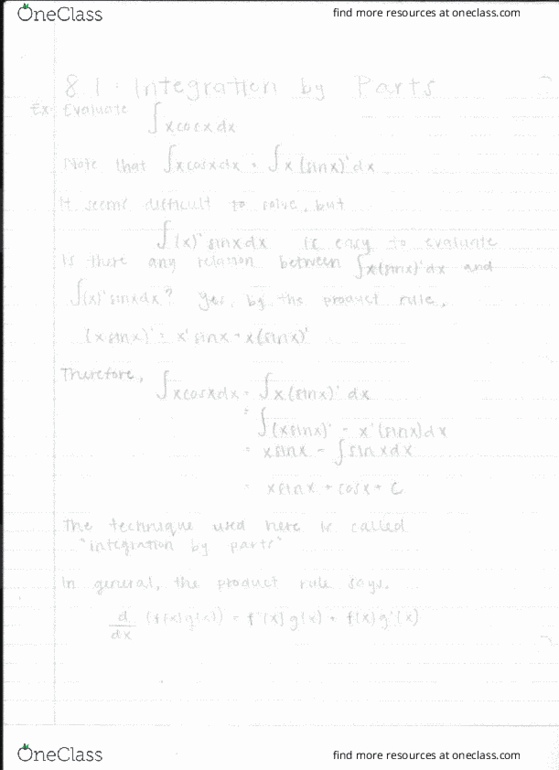 OneClass
find more resources at oneclass.com
8.1: Integration by Parts
Ex: Evaluate ∫xcosxdx
Note that ∫xcosxdx = ∫x(sinx)'dx
It seems difficult to solve, but
∫(x)'sinxdx is easy to evaluate
Is there any relation between ∫x(sinx)'dx and
∫(x)'sinxdx? Yes, by the product rule,
(xsinx)' = x'sinx + x(sinx)'
Therefore,
∫xcosxdx = ∫x(sinx)' dx
= ∫(xsinx)' - x'(sinx)dx
= xsinx - ∫sinxdx
= xsinx + cosx + C
The technique used here is called
"integration by parts"
In general, the product rule says,
d/dx (f(x)g(x)) = f'(x)g(x) + f(x)g'(x)
OneClass
find more resources at oneclass.com